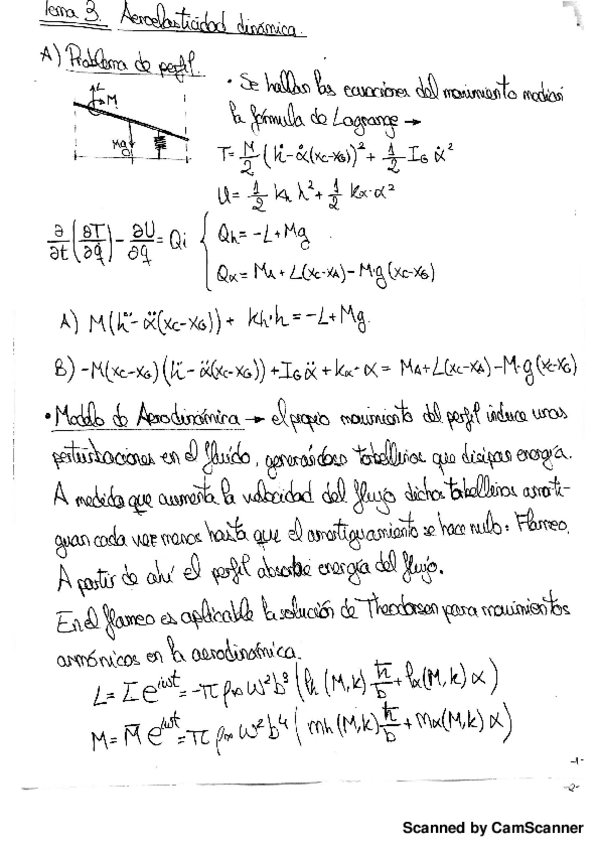 Tema 3. Aeroelasticidad dinámica.
A) Problema de perfil.
• Se hallan las ecuaciones del movimiento median
la fórmula de Lagrange →
L
M
Mg
T = M/2 (ḣ - α̇(xc-xG))² + 1/2 IG α̇²
U = 1/2 kh h² + 1/2 kα·α²
∂/∂t (∂T/∂q̇) - ∂U/∂q = Qi { Qh = -L + Mg
Qα = MA + L(xc-xA) - M·g(xc-xG)
A) M(ḧ - α̈(xc-xG)) + kh·h = -L + Mg.
B) -M(xc-xG)(ḧ - α̈(xc-xG)) + IG α̈ + kα·α = MA + L(xc-xA) - M·g(xc-xG)
• Modelo de Aerodinámica → el propio movimiento del perfil induce unas
perturbaciones en el fluido, generándose torbellinos que disipan energía.
A medida que aumenta la velocidad del flujo dichos torbellinos amorti-
guan cada vez menos hasta que el amortiguamiento se hace nulo: Flameo.
A partir de ahí el perfil absorbe energía del flujo.
En el flameo es aplicable la solución de Theodorsen para movimientos
armónicos en la aerodinámica.
L = L̄ e^iωt = -π ρ∞ ω² b³ (lh (M,k) h̄/b + lα (M,k) α)
M = M̄ e^iωt = π ρ∞ ω² b⁴ (mh (M,k) h̄/b + mα (M,k) α)
-1-
-2-
Scanned by CamScanner